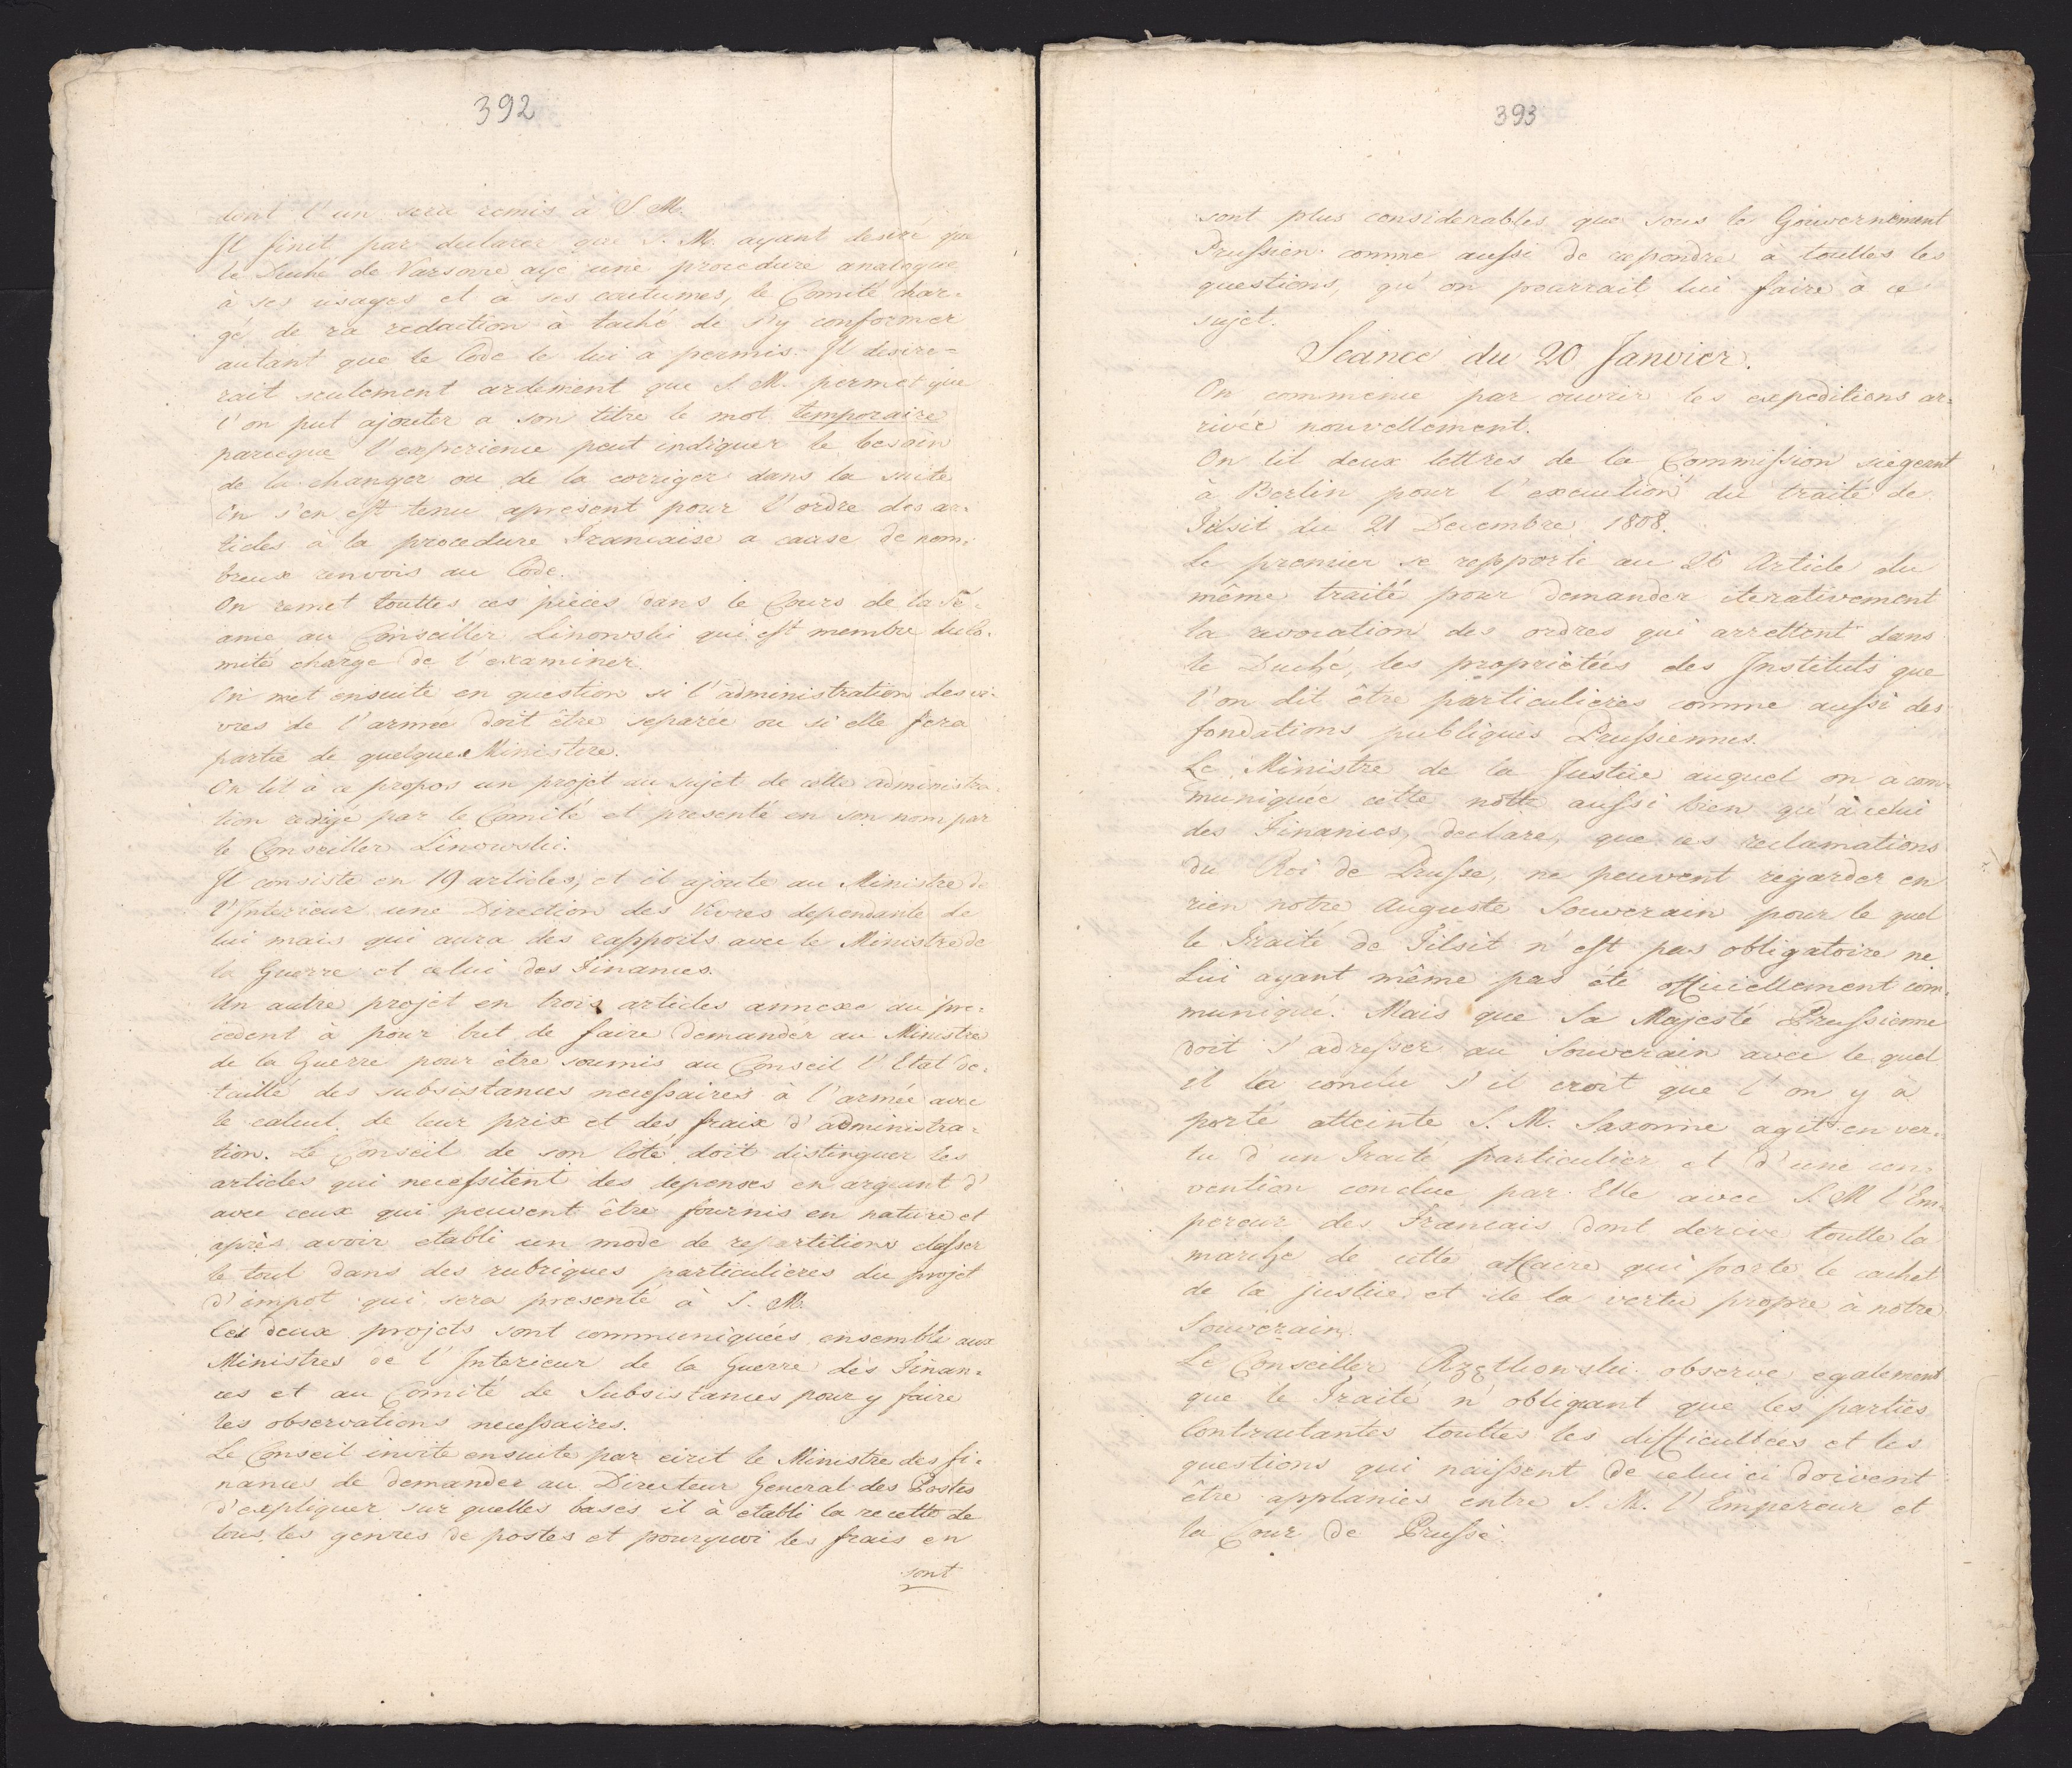 392
dont l'un sera remis à S. M.
Il finit par declarer que S. M. ayant desiré que
le Duché de Varsovie aye une procedure analogue
à ses usages et à ses coutumes, le Comité char=
gé de sa redaction à taché de s'y conformer
autant que le Code le lui a permis. Il desire=
rait seulement ardement que S. M. permet que
l'on put ajouter a son titre le mot temporaire
parceque l'experience peut indiquer le besoin
de la changer ou de la corriger dans la suite
On s'en est tenu apresent pour l'ordre des ar=
ticles à la procedure Francaise a cause de nom=
breux renvois au Code.
On remet touttes ces pièces dans le Cours de la Sé=
ance au Conseiller Linowski qui est membre du Co=
mité chargé de l'examiner.
On met ensuite en question si l'administration des vi=
vres de l'armée doit être separée ou si elle fera
partie de quelques Ministere.
On lit à ce propos un projet au sujet de cette administra=
tion redigé par le Comité et presenté en son nom par
le Conseiller Linowski.
Il consiste en 19 articles, et il ajoute au Ministre de
l'Interieur une Direction des Vivres dependante de
lui mais qui aura des rapports avec le Ministre de
la Guerre et celui des Finances.
Un autre projet en trois articles annexe au pre=
cedent à pour but de faire demander au Ministre
de la Guerre pour être soumis au Conseil l'Etat de=
taillé des subsistances necessaires à l'armée avec
le calcul de leur prix et des fraix d'administra=
tion. Le Conseil de son Coté doit distinguer les
articles qui necessitent des depenses en argeant d'
avec ceux qui peuvent être fournis en nature et
après avoir etabli un mode de repartitions classer
le tout dans des rubriques particulieres du projet
d'impot qui sera presenté à S. M.
Ces deux projets sont communiquées ensemble aux
Ministres de l'Interieur de la Guerre des Finan=
ces et au Comité de Subsistances pour y faire
les observations necessaires.
Le Conseil invite ensuite par ecrit le Ministre des fi=
nances de demander au Directeur General des Postes
d'expliquer sur quelles bases il à etabli la recette de
tous les genres de postes et pourquoi les frais en
sont
393
sont plus considerables que sous le Gouvernement
Prussien comme aussi de repondre à touttes les
questions, qu'on pourrait lui faire à ce
sujet.
Seance du 20 Janvier.
On commence par ouvrir les expeditions ar=
rivée nouvellement.
On lit deux lettres de la Commission siegeant
à Berlin pour l'execution du traité de
Tilsit du 21 Decembre 1808.
Le premier se repporte au 25 Article du
même traité pour demander iterativement
la revocation des ordres qui arrettent dans
le Duché, les proprietées des Instituts que
l'on dit être particulieres comme aussi des
fondations publiques Prussiennes.
Le Ministre de la Justice auquel on a com=
muniquée cette notte aussi bien qu'à celui
des Finances, declare, que ces reclamations
du Roi de Prusse, ne peuvent regarder en
rien notre Auguste Souverain pour le quel
le Traité de Tilsit n'est pas obligatoire ne
Lui ayant même pas été officiellement com=
muniqué. Mais que Sa Majesté Prussienne
doit s'adresser au Souverain avec le quel
il l'a conclu s'il croit que l'on y a
porté atteinte S. M. Saxonne agit en ver=
tu d'un Traité particulier et d'une con=
vention conclue par Elle avec S. M l'Em=
pereur des Francais dont derive toutte la
marche de cette affaire qui porte le cachet
de la justice et de la vertu propre à notre
Souverain.
Le Conseiller observe egalement
que le Traité n'obligeant que les parties
Contractantes touttes les difficultées et les
questions qui naissent de celui ci doivent
être applanies entre S. M. l'Empereur et
la Cour de Prusse.